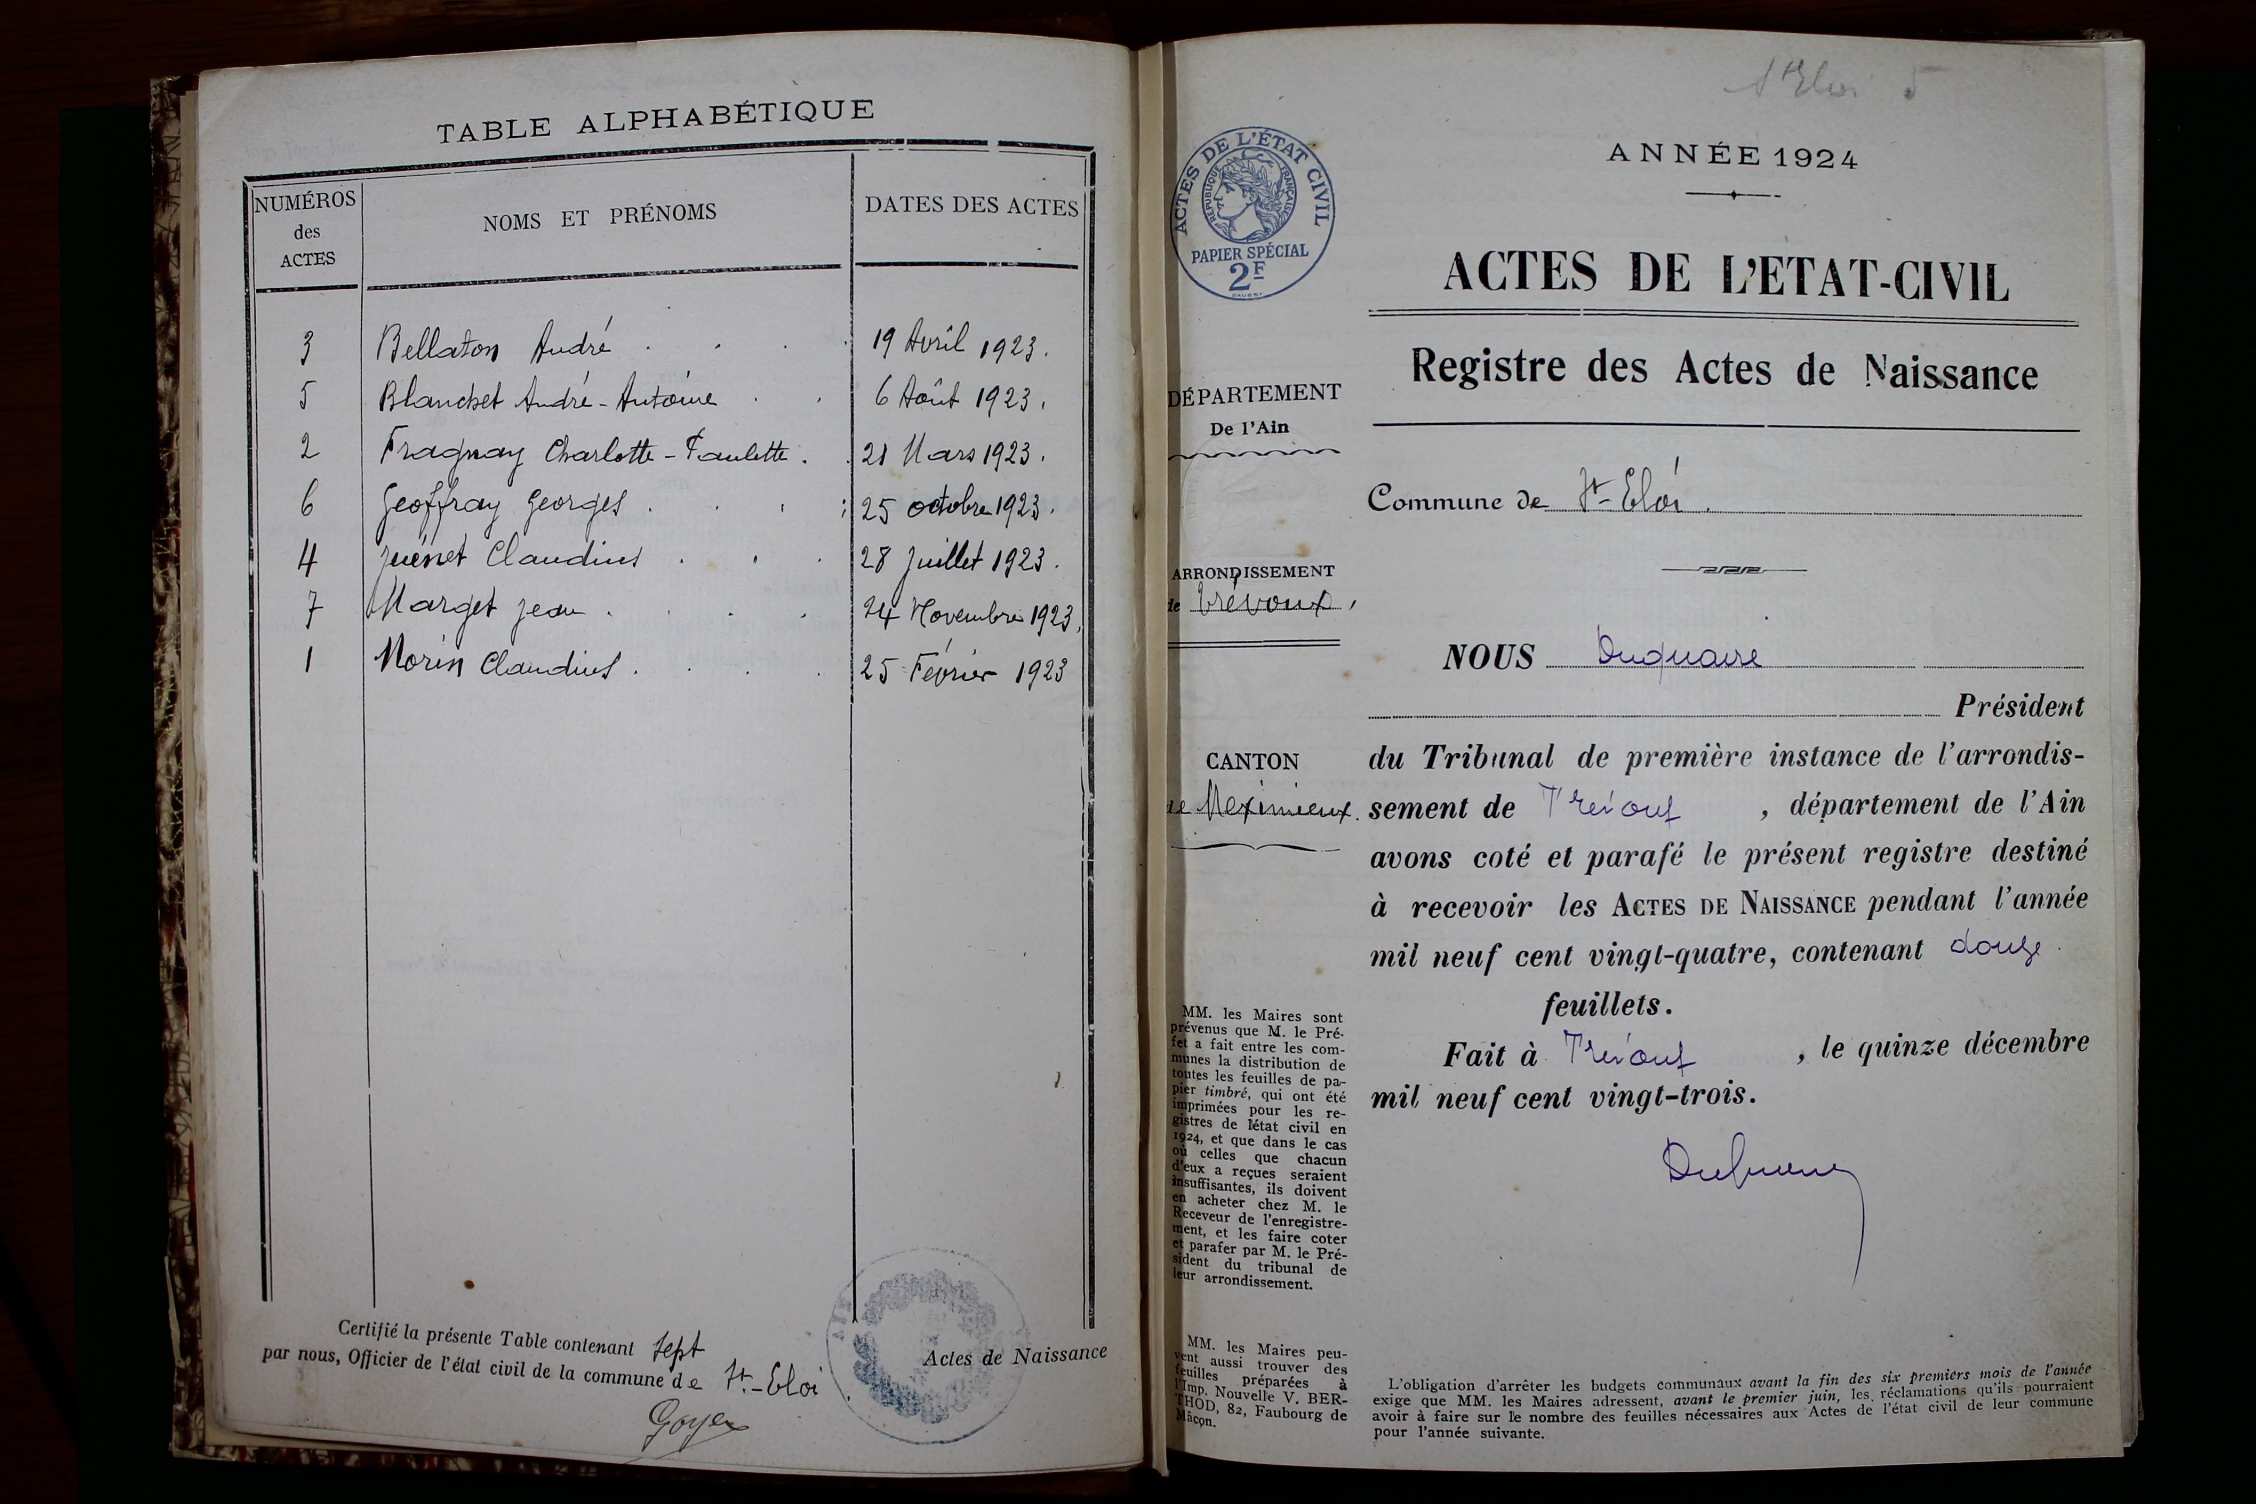 TABLE ALPHABÉTIQUE
NUMÉROS des ACTES
NOMS ET PRÉNOMS
DATES DES ACTES
3 Bellaton André 19 Avril 1923.
5 Blanchet André-Antoine 6 Août 1923.
2 Fragnay Charlotte-Paulette 21 Mars 1923.
6 Geoffray Georges 25 octobre 1923.
4 Juénet Claudius 28 Juillet 1923.
7 Marget Jean 24 Novembre 1923.
1 Morin Claudius 25 Février 1923
Certifié la présente Table contenant sept
Actes de Naissance
par nous, Officier de l'état civil de la commune de St-Eloi
St Eloi 5
ACTES DE L'ÉTAT CIVIL
RÉPUBLIQUE FRANÇAISE
PAPIER SPÉCIAL
2F
DÉPARTEMENT
De l'Ain
ARRONDISSEMENT
de Trévoux,
CANTON
de Meximieux.
MM. les Maires sont
prévenus que M. le Pré-
fet a fait entre les com-
munes la distribution de
toutes les feuilles de pa-
pier timbré, qui ont été
imprimées pour les re-
gistres de l'état civil en
1924, et que dans le cas
où celles que chacun
d'eux a reçues seraient
insuffisantes, ils doivent
en acheter chez M. le
Receveur de l'enregistre-
ment, et les faire coter
et parafer par M. le Pré-
sident du tribunal de
leur arrondissement.
MM. les Maires peu-
vent aussi trouver des
feuilles préparées à
l'Imp. Nouvelle V. BER-
THOD, 82, Faubourg de
Mâcon.
ANNÉE 1924
ACTES DE L'ETAT-CIVIL
Registre des Actes de Naissance
Commune de St-Eloi.
NOUS Duquaire
Président
du Tribunal de première instance de l'arrondis-
sement de Trévoux, département de l'Ain
avons coté et parafé le présent registre destiné
à recevoir les ACTES DE NAISSANCE pendant l'année
mil neuf cent vingt-quatre, contenant douze
feuillets.
Fait à Trévoux, le quinze décembre
mil neuf cent vingt-trois.
L'obligation d'arrêter les budgets communaux avant la fin des six premiers mois de l'année
exige que MM. les Maires adressent, avant le premier juin, les réclamations qu'ils pourraient
avoir à faire sur le nombre des feuilles nécessaires aux Actes de l'état civil de leur commune
pour l'année suivante.